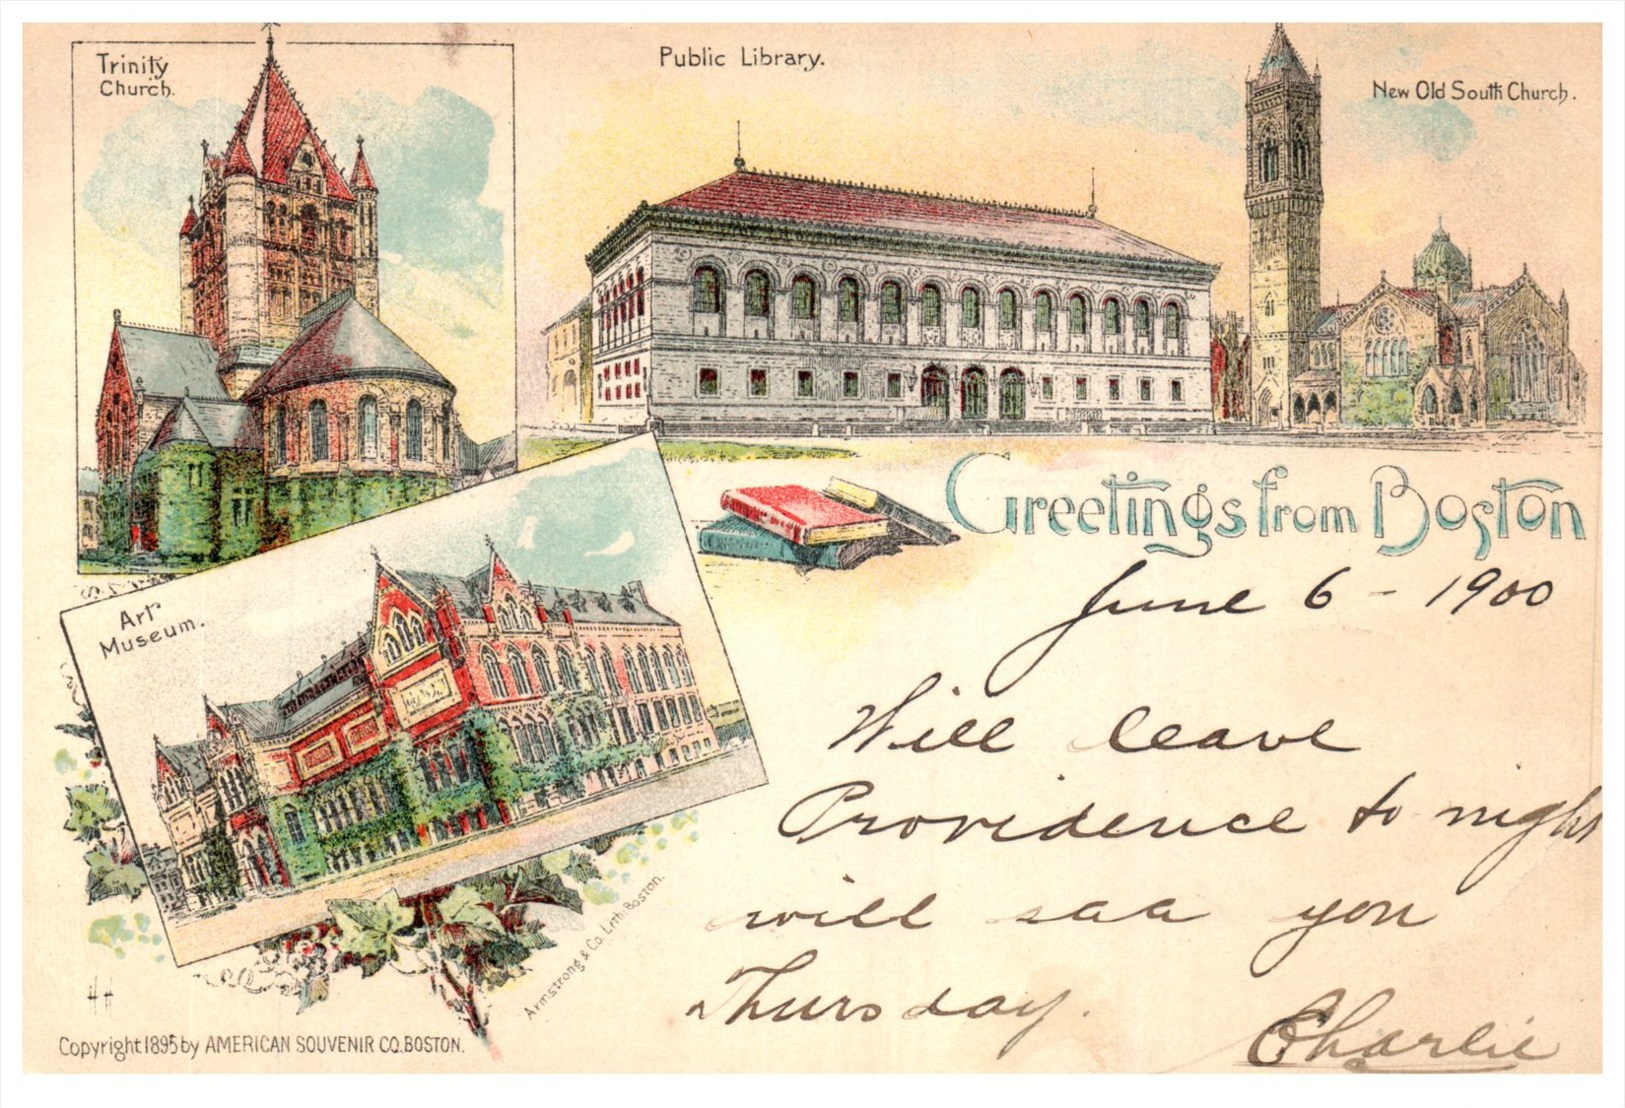 Trinity
Church.
Public Library.
New Old South Church.
Greetings from Boston
Art
Museum.
June 6 - 1900
Will leave
Providence to night
will saa you
Thursday.
Charlie
Armstrong & Co. Lith. Boston.
HH
Copyright 1895 by AMERICAN SOUVENIR CO. BOSTON.